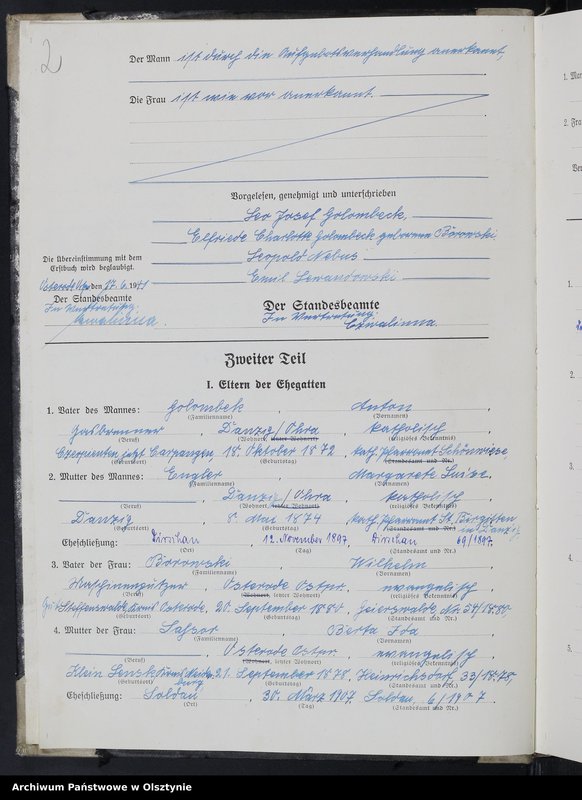 2
Der Mann ist durch die Aufgebotsverhandlung anerkannt,
Die Frau ist wie vor anerkannt.
Vorgelesen, genehmigt und unterschrieben
Leo Josef Golombeck,
Elfriede Charlotte Golombeck geborene Borowski
Leopold Nebus
Emil Lewandowski
Die Übereinstimmung mit dem
Erstbuch wird beglaubigt.
den 27. 6. 1941
Der Standesbeamte
In Vertretung:
Czwalinna.
Der Standesbeamte
In Vertretung:
Czwalinna.
Zweiter Teil
I. Eltern der Ehegatten
1. Vater des Mannes: Golombek, Anton,
(Familienname) (Vornamen)
Gasbrenner, Danzig/Ohra, katholisch
(Beruf) (Wohnort, letzter Wohnort) (religiöses Bekenntnis)
jetzt 18. Oktober 1872, kath. Pfarramt Schönwiese
(Geburtsort) (Geburtstag) (Standesamt und Nr.)
2. Mutter des Mannes: Engler, Margarete Luise.
(Familienname) (Vornamen)
Danzig/Ohra, katholisch,
(Beruf) (Wohnort, letzter Wohnort) (religiöses Bekenntnis)
Danzig, 8. Mai 1874, kath. Pfarramt St. Birgitten in Danzig.
(Geburtsort) (Geburtstag) (Standesamt und Nr.)
Eheschließung: Dirschau, 12. November 1897, Dirschau 69/1897.
(Ort) (Tag) (Standesamt und Nr.)
3. Vater der Frau: Borowski, Wilhelm,
(Familienname) (Vornamen)
Maschinenputzer, Osterode Ostpr., evangelisch
(Beruf) (Wohnort, letzter Wohnort) (religiöses Bekenntnis)
Steffenswalde Osterode, 20. September 1880, Geierswalde Nr. 54/1880,
(Geburtsort) (Geburtstag) (Standesamt und Nr.)
4. Mutter der Frau: Berta Ida,
(Familienname) (Vornamen)
Osterode Ostpr., evangelisch,
(Beruf) (Wohnort, letzter Wohnort) (religiöses Bekenntnis)
Klein Lensk Kreis Neidenburg, 21. September 1878, Heinrichsdorf, 33/1878,
(Geburtsort) (Geburtstag) (Standesamt und Nr.)
Eheschließung: Soldau, 30. März 1907, Soldau, 6/1907.
(Ort) (Tag) (Standesamt und Nr.)
Archiwum Państwowe w Olsztynie